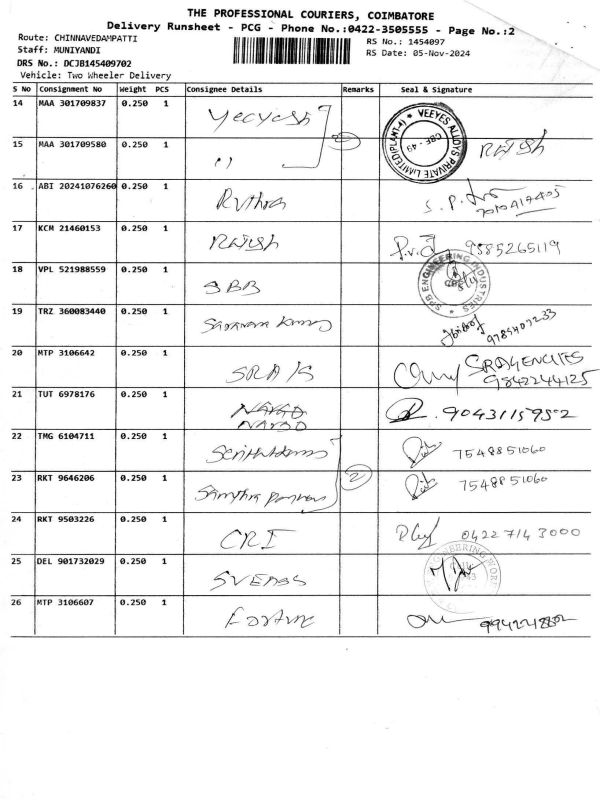 THE PROFESSIONAL COURIERS, COIMBATORE
Delivery Runsheet - PCG - Phone No.:0422-3505555 - Page No.:2
Route: CHINNAVEDAMPATTI
Staff: MUNIYANDI
DRS No.: DCJB145409702
Vehicle: Two Wheeler Delivery
RS No.: 1454097
RS Date: 05-Nov-2024
S No Consignment No Weight PCS Consignee Details Remarks Seal & Signature
14 MAA 301709837 0.250 1
VEEYES ALLOYS PRIVATE LIMITED (PLANT-4) CBE - 49
15 MAA 301709580 0.250 1 " Rajesh
16 ABI 20241076260 0.250 1 Ruthra S.P.
17 KCM 21460153 0.250 1 Rajesh 9585265119
18 VPL 521988559 0.250 1 SBB SPB ENGINEERING INDUSTRIES
19 TRZ 360083440 0.250 1 Saravana Kumar
20 MTP 3106642 0.250 1 SRA/S SR AGENCIES
9842244125
21 TUT 6978176 0.250 1
22 TMG 6104711 0.250 1 7548851060
23 RKT 9646206 0.250 1 2 7548851060
24 RKT 9503226 0.250 1 CRI 0422 714 3000
25 DEL 901732029 0.250 1
26 MTP 3106607 0.250 1 Fortune